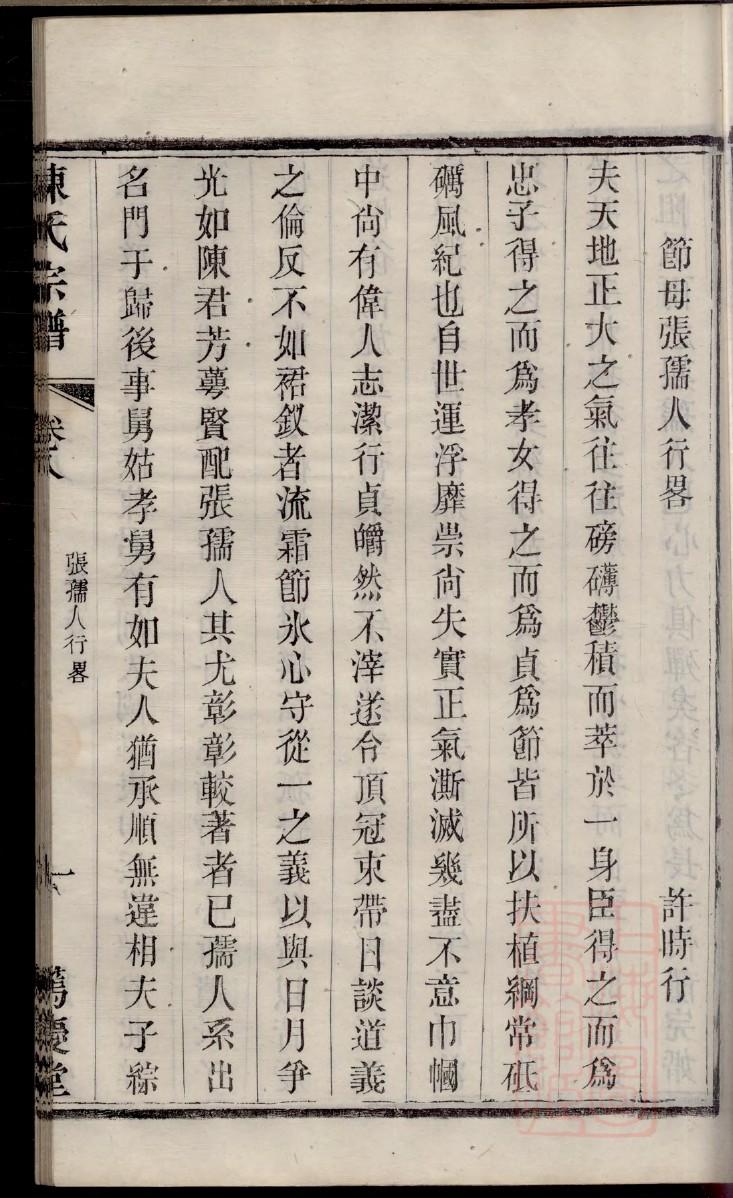 節母張孺人行畧 許時行
夫天地正大之氣往往磅礴鬱積而萃於一身臣得之而爲
忠子得之而爲孝女得之而爲貞爲節皆所以扶植綱常砥
礪風紀也自世運浮靡祟尙失實正氣澌滅幾盡不意巾幗
中尙有偉人志潔行貞皭然不滓遂令頂冠束帶日談道義
之倫反不如裙釵者流霜節氷心守從一之義以與日月爭
光如陳君芳蕚賢配張孺人其尤彰彰較著者已孺人系出
名門于歸後事舅姑孝舅有如夫人猶承順無違相夫子綜
陳氏宗譜 卷八 張孺人行畧 一 篤慶堂